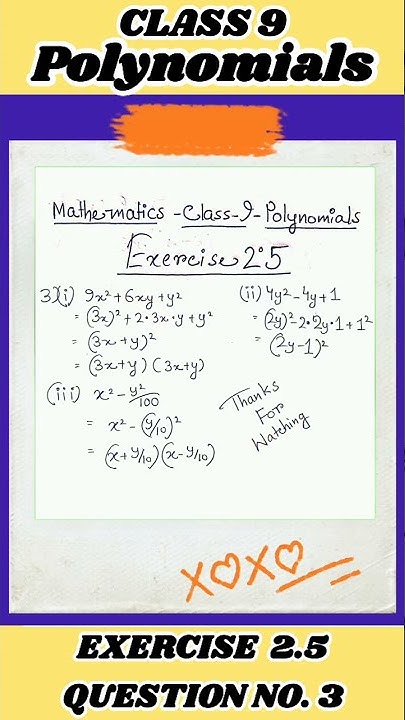 CLASS 9
Polynomials
Mathematics - Class-9- Polynomials
Exercise 2.5
3)(i) 9x² + 6xy + y²
= (3x)² + 2·3x·y + y²
= (3x+y)²
= (3x+y) (3x+y)
(ii) 4y² - 4y + 1
= (2y)² - 2·2y·1 + 1²
= (2y-1)²
(iii) x² - y²/100
= x² - (y/10)²
= (x + y/10) (x - y/10)
Thanks
For
Watching
XOXO
EXERCISE 2.5
QUESTION NO. 3